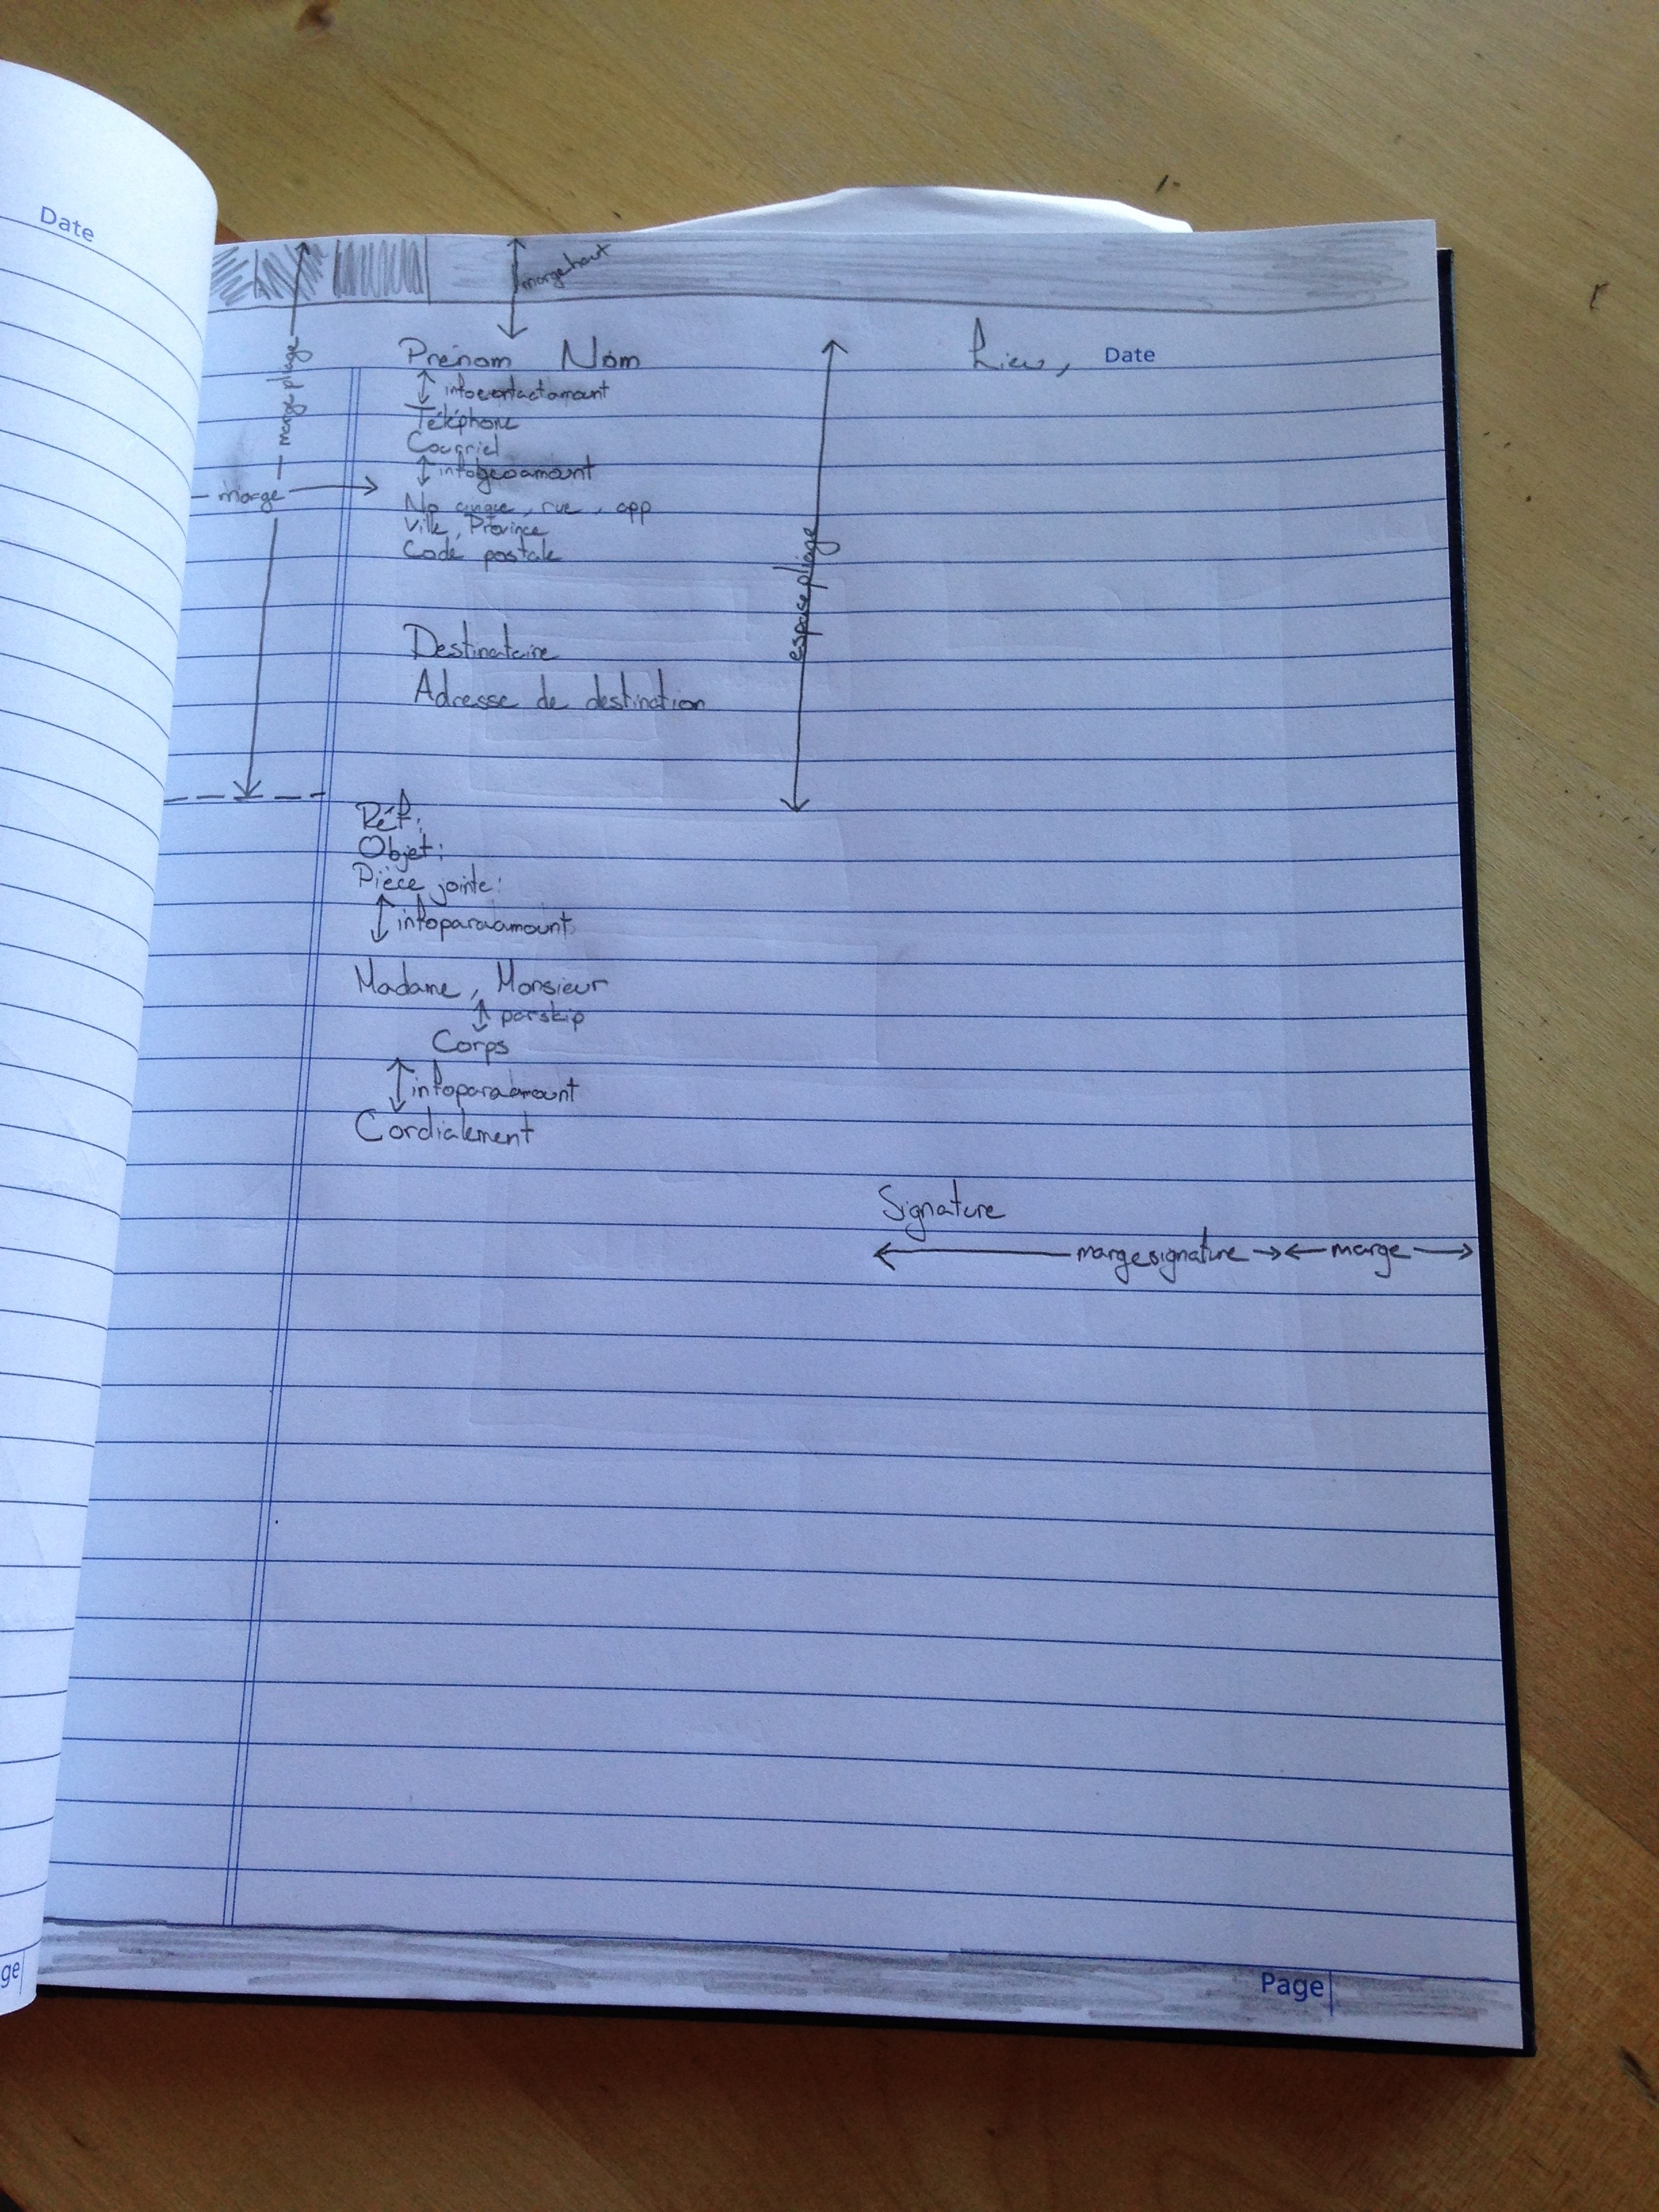 Date
margehaut
Prénom Nom
Lieu, Date
infocontactamount
Téléphone
Courriel
infogeoamount
marge pliage
marge
No civique, rue, app
Ville, Province
Code postale
espacepliage
Destinataire
Adresse de destination
Réf:
Objet:
Pièce jointe:
infoparaamount
Madame, Monsieur
parskip
Corps
infoparaamount
Cordialement
Signature
margesignature marge
Page
ge